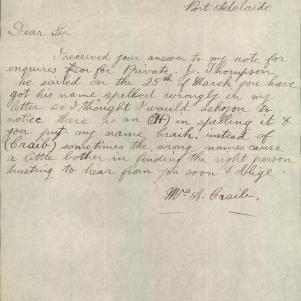 Port Adelaide
Dear Sir
I received your answer to my note for
enquires for Private J. Thompson
he sailed on the 25th of March you have
got his name spelled wrongly in my
letter so I thought I would ask you to
notice there is an (H) in spelling it &
you put my name Craih, instead of
(Craib) sometimes the wrong names cause
a little bother in finding the right person
trusting to hear from you soon & oblige
Mrs A. Craib.